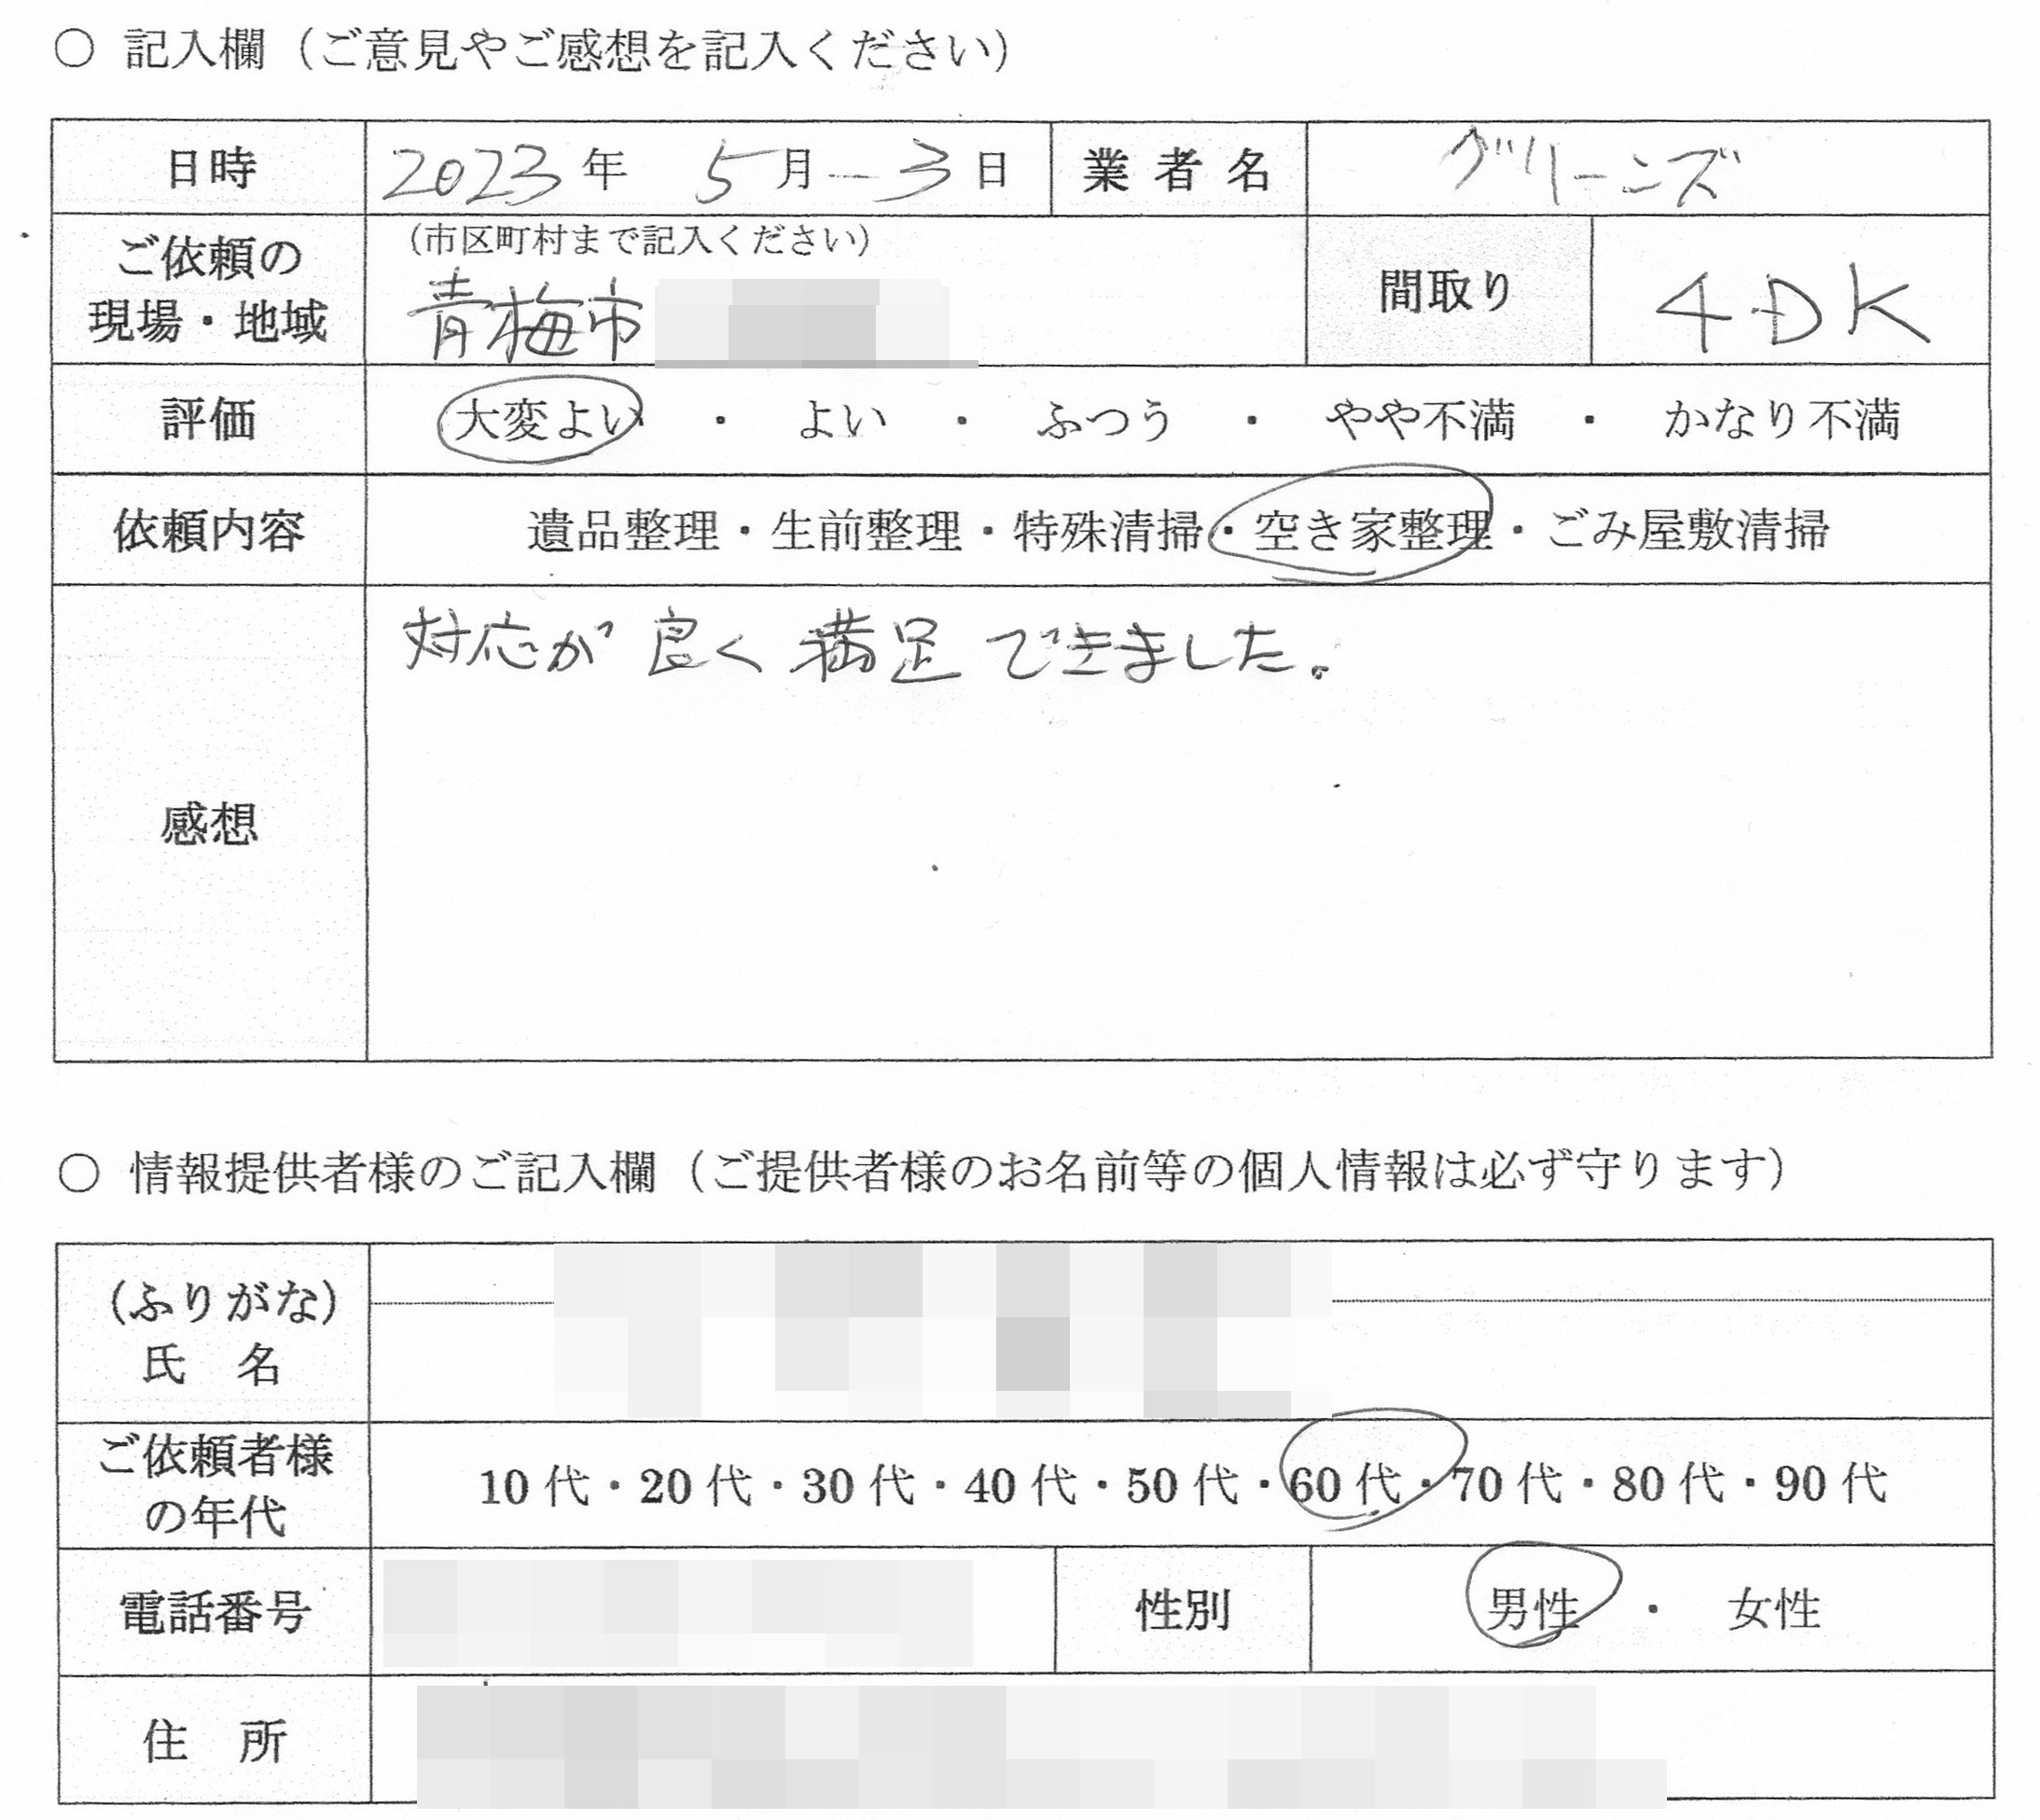 ○ 記入欄（ご意見やご感想を記入ください）
日時 2023年 5月 3日 業者名 グリーンズ
ご依頼の現場・地域 （市区町村まで記入ください）
青梅市 間取り 4DK
評価 大変よい ・ よい ・ ふつう ・ やや不満 ・ かなり不満
依頼内容 遺品整理・生前整理・特殊清掃・空き家整理・ごみ屋敷清掃
感想 対応が良く満足できました。
○ 情報提供者様のご記入欄（ご提供者様のお名前等の個人情報は必ず守ります）
（ふりがな）
氏 名
ご依頼者様の年代 10代・20代・30代・40代・50代・60代・70代・80代・90代
電話番号 性別 男性 ・ 女性
住 所